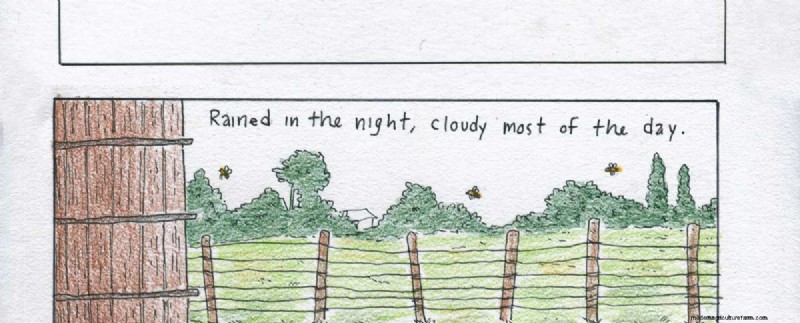 Rained in the night, cloudy most of the day.